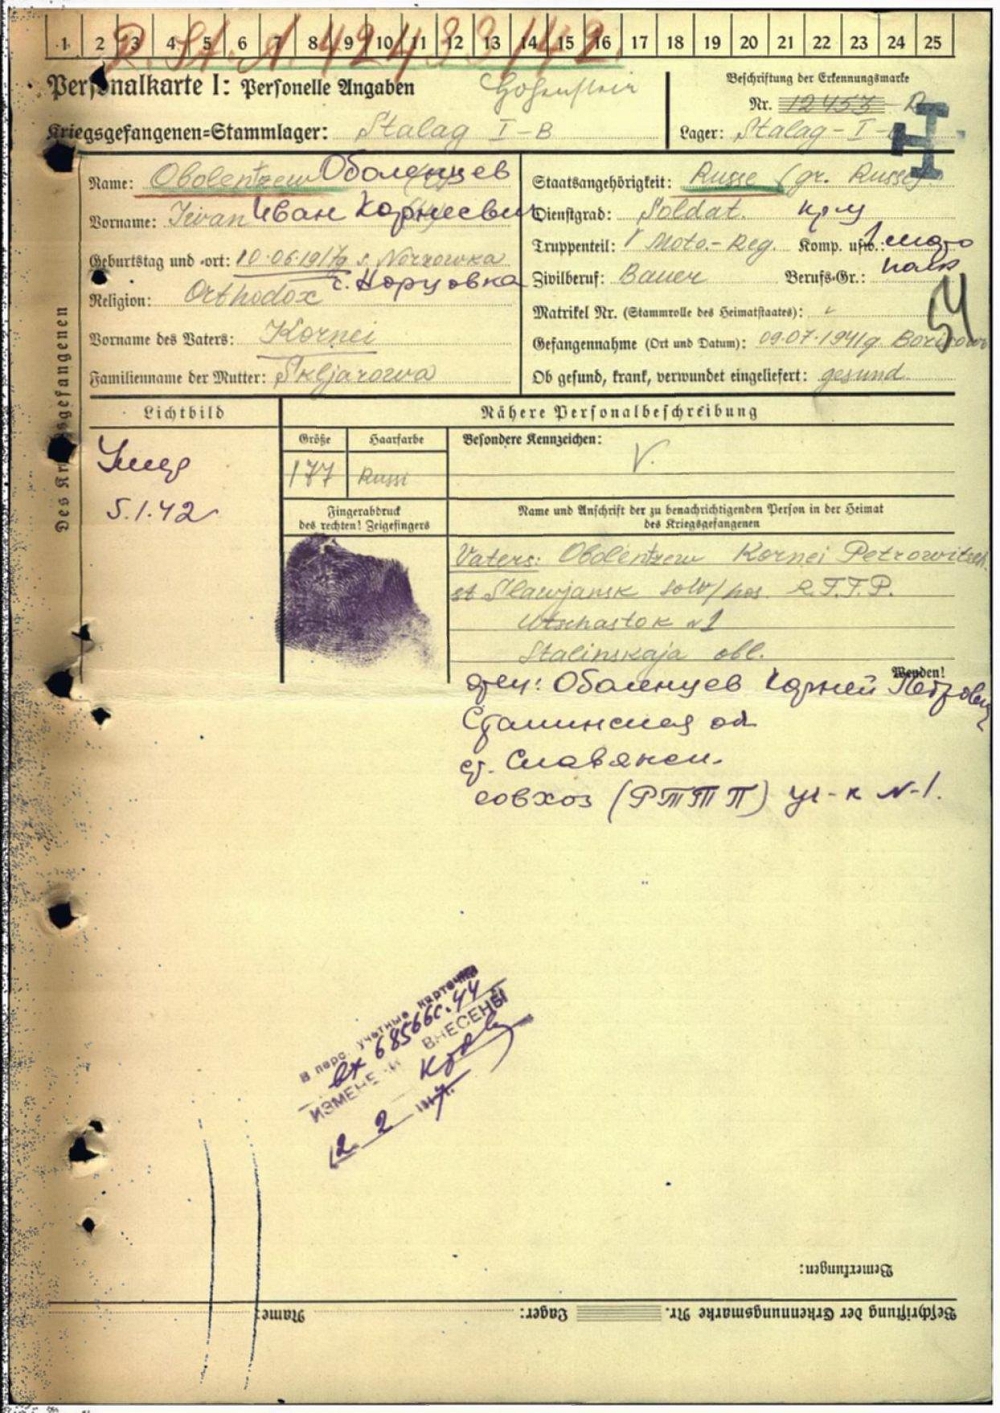 1 2 3 4 5 6 7 8 9 10 11 12 13 14 15 16 17 18 19 20 21 22 23 24 25
Personalkarte I: Personelle Angaben
Hohenstein
Kriegsgefangenen=Stammlager: Stalag I-B
Beschriftung der Erkennungsmarke
Nr. 12453
Lager: Stalag-I-
Des Kriegsgefangenen
Name: Obolentzew Оболенцев
Vorname: Iwan Иван Корнеевич
Geburtstag und =ort: 10.06.1917g s. Norzowka
с. Норцовка
Religion: Orthodox
Vorname des Vaters: Kornei
Familienname der Mutter: Skljarowa
Staatsangehörigkeit: Russe (gr. Russe)
Dienstgrad: Soldat. кр-ц
Truppenteil: 1 Moto.-Reg. Komp. usw.: 1 мото
полк
Zivilberuf: Bauer Berufs=Gr.:
Matrikel Nr. (Stammrolle des Heimatstaates):
Gefangennahme (Ort und Datum): 09.07.1941g. Borisow
Ob gesund, krank, verwundet eingeliefert: gesund.
54
Lichtbild
Умер
5.1.42
Nähere Personalbeschreibung
Größe Haarfarbe Besondere Kennzeichen:
177 Russi V.
Fingerabdruck
des rechten! Zeigefingers
Name und Anschrift der zu benachrichtigenden Person in der Heimat
des Kriegsgefangenen
Vaters: Obolentzew Kornei Petrowitsch.
st Slawjansk R.T.T.P.
Utschastok N1
Stalinskaja obl.
Wenden!
отец: Оболенцев Корней Петрович
Сталинская об
ст. Славянск.
совхоз (РТТП) уч-к N-1.
В перс. учетные карточки
вх 68566с.44
ИЗМЕНЕНИЯ ВНЕСЕНЫ
Bemerkungen:
Name: Lager: Beschriftung der Erkennungsmarke Nr.